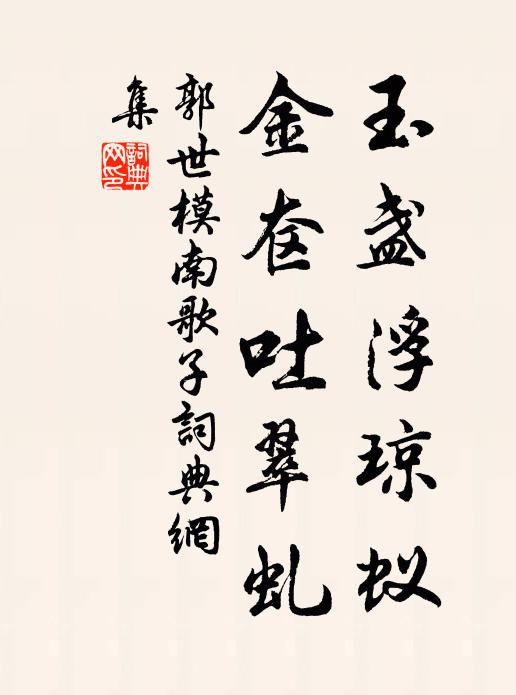 玉盏浮琼蚁
金奁吐翠虬
郭世模南歌子詞典網
集
詞典網印